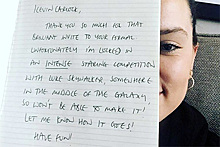 KEVIN CARTER,
THANK YOU SO MUCH FOR THAT
BRILLIANT WRITE TO YOUR FORMAL
UNFORTUNATELY I'M LOCKED IN
AN INTENSE STARING COMPETITION
WITH LUKE SKYWALKER, SOMEWHERE
IN THE MIDDLE OF THE GALAXY,
SO WON'T BE ABLE TO MAKE IT!
LET ME KNOW HOW IT GOES!
HAVE FUN!